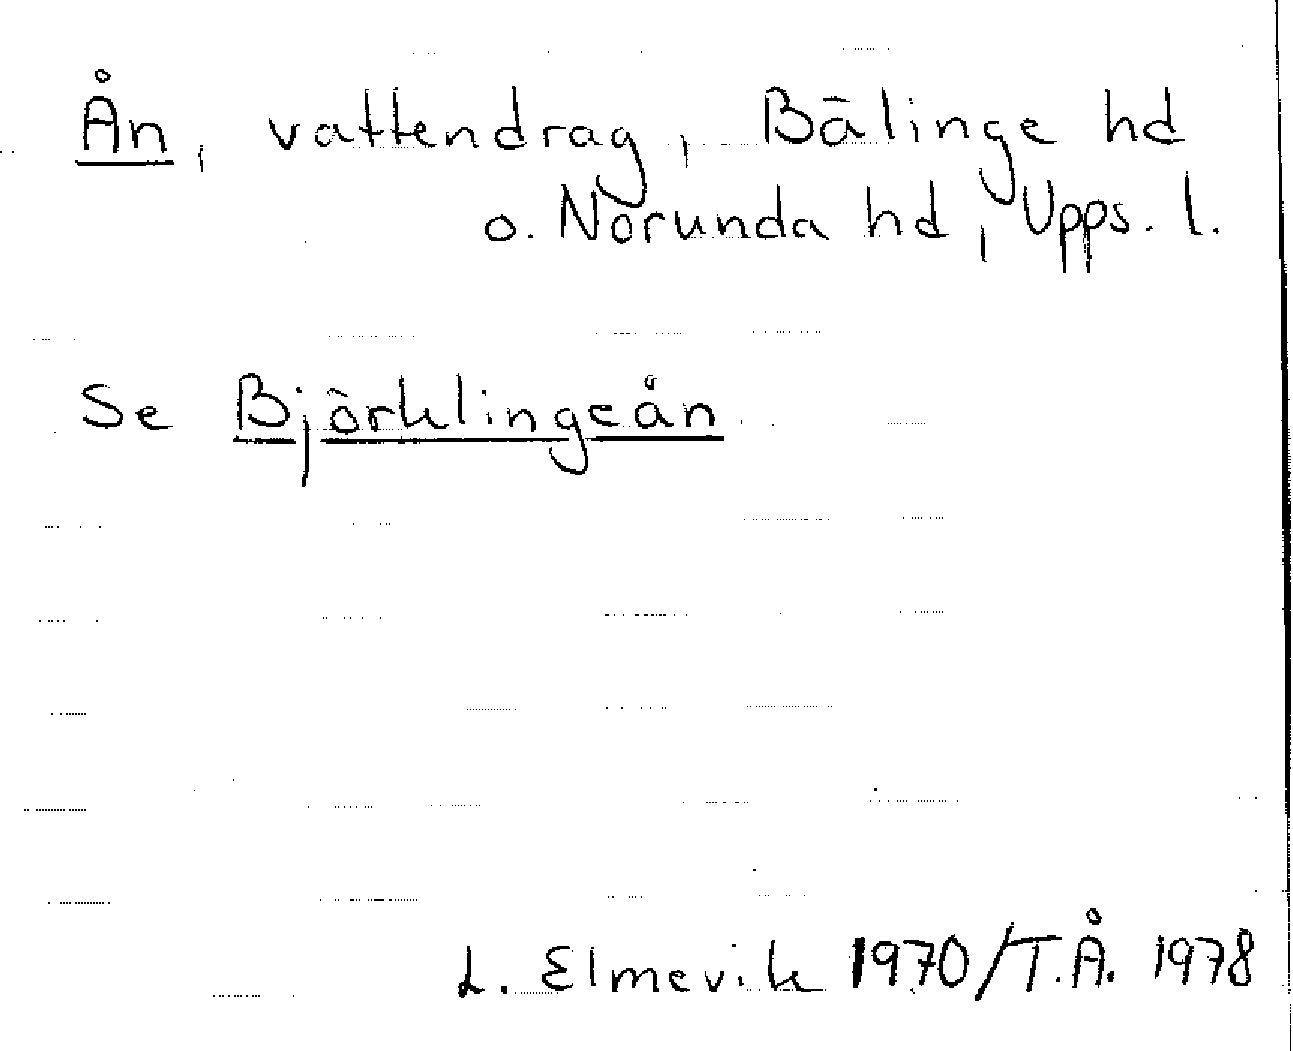 Ån, vattendrag, Bälinge hd
o. Norunda hd, Upps. l.
Se Björklingeån
L. Elmevik 1970/T.Å. 1978